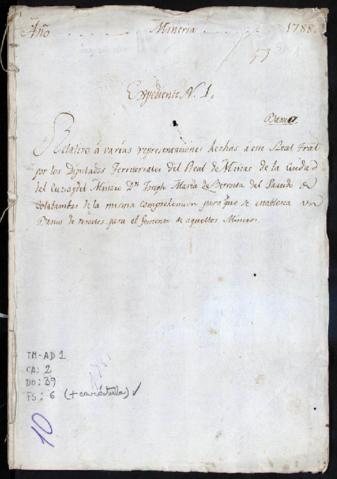 Año . . . . . . Mineria . . . . . . 1788.
53
Expediente N. 1.
Relativo à varias representaciones hechas a este Real Trial
por los Diputados Territoriales del Real de Minas de la Ciudad
del Cuzco, y del Minero Dn Joseph Maria de del Partido de
de la misma comprehencion para que se establesca un
Banco de rescates para el fomento de aquellos Mineros.
TM-AD 1
CA: 2
DO: 39
FS: 6 (+ carátula) ✓
10